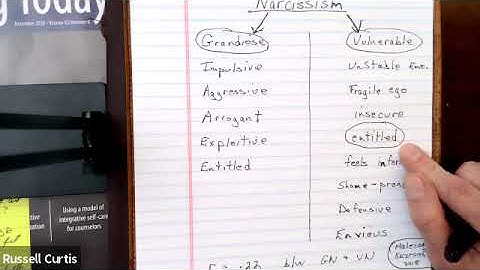 g Today
Narcissism
Grandiose
Impulsive
Aggressive
Arrogant
Exploitive
Entitled
Vulnerable
Unstable Emo.
Fragile ego
insecure
entitled
feels infer
Shame-prone
Defensive
Envious
r = .22 b/w GN & VN
Using a model
of integrative self-care
for counselors
Russell Curtis